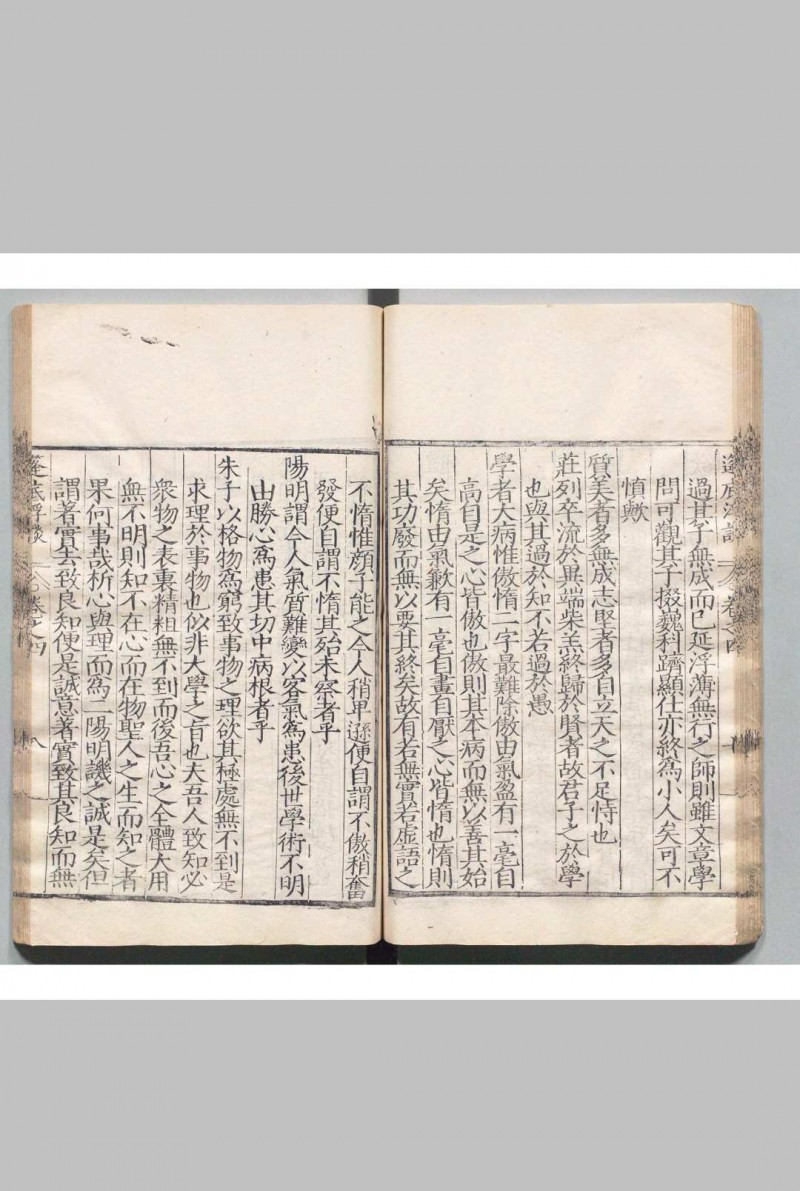 過其子無成而已延浮薄無行之師則雖文章學
問可觀其子掇巍科躋顯仕亦終為小人矣可不
慎歟
質美者多無成志堅者多自立天之不足恃也
莊列卒流於異端柴羔終歸於賢者故君子之於學
也與其過於知不若過於愚
學者大病惟傲惰二字最難除傲由氣盈有一毫自
高自是之心皆傲也傲則其本病而無以善其始
矣惰由氣歉有一毫自畫自厭之心皆惰也惰則
其功廢而無以要其終矣故有若無實若虛語之
不惰惟顏子能之今人稍卑遜便自謂不傲稍奮
發便自謂不惰其殆未察者乎
陽明謂今人氣質難變以客氣為患後世學術不明
由勝心為患其切中病根者乎
朱子以格物為窮致事物之理欲其極處無不到是
求理於事物也似非大學之旨也夫吾人致知必
衆物之表裏精粗無不到而後吾心之全體大用
無不明則知不在心而在物聖人之生而知之者
果何事哉析心與理而為二陽明譏之誠是矣但
謂著實去致良知便是誠意著實致其良知而無
篷底浮談
卷之四
八